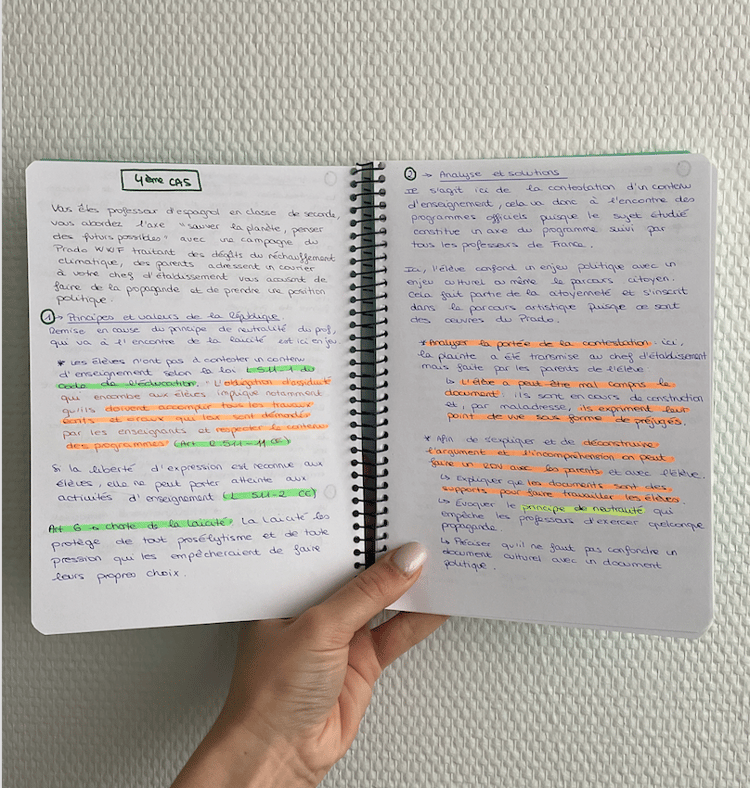 4ème CAS
Vous êtes professeur d'espagnol en classe de seconde,
vous abordez l'axe "sauver la planète, penser
des futurs possibles" avec une campagne du
Prado WWF traitant des dégâts du réchauffement
climatique, des parents adressent un courrier
à votre chef d'établissement vous accusant de
faire de la propagande et de prendre une position
politique.
1 → Principes et valeurs de la République
Remise en cause du principe de neutralité du prof,
qui va à l'encontre de la laïcité est ici en jeu.
* Les élèves n'ont pas à contester un contenu
d'enseignement selon la loi L 511-1 du
code de l'éducation. "L'obligation d'assiduité
qui incombe aux élèves implique notamment
qu'ils doivent accomplir tous les travaux
écrits et oraux qui leur sont demandés
par les enseignants et respecter le contenu
des programmes" (Art L 511-11 CE)
Si la liberté d'expression est reconnue aux
élèves, elle ne peut porter atteinte aux
activités d'enseignement (L 511-2 CE)
Art 6 → charte de la laïcité: La laïcité les
protège de tout prosélytisme et de toute
pression qui les empêcheraient de faire
leurs propres choix.
2 → Analyse et solutions
Il s'agit ici de la contestation d'un contenu
d'enseignement, cela va donc à l'encontre des
programmes officiels puisque le sujet étudié
constitue un axe du programme suivi par
tous les professeurs de France.
Ici, l'élève confond un enjeu politique avec un
enjeu culturel ou même le parcours citoyen.
Cela fait partie de la citoyenneté et s'inscrit
dans le parcours artistique puisque ce sont
des œuvres du Prado.
* Analyser la portée de la contestation: ici,
la plainte a été transmise au chef d'établissement
mais faite par les parents de l'élève.
↳ L'élève a peut être mal compris le
document: ils sont en cours de construction
et, par maladresse, ils expriment leur
point de vue sous forme de préjugés.
* Afin de s'expliquer et de déconstruire
l'argument et l'incompréhension on peut
faire un RDV avec les parents et avec l'élève.
↳ Expliquer que les documents sont des
supports pour faire travailler les élèves.
↳ Évoquer le principe de neutralité qui
empêche les professeurs d'exercer quelconque
propagande.
↳ Préciser qu'il ne faut pas confondre un
document culturel avec un document
politique.